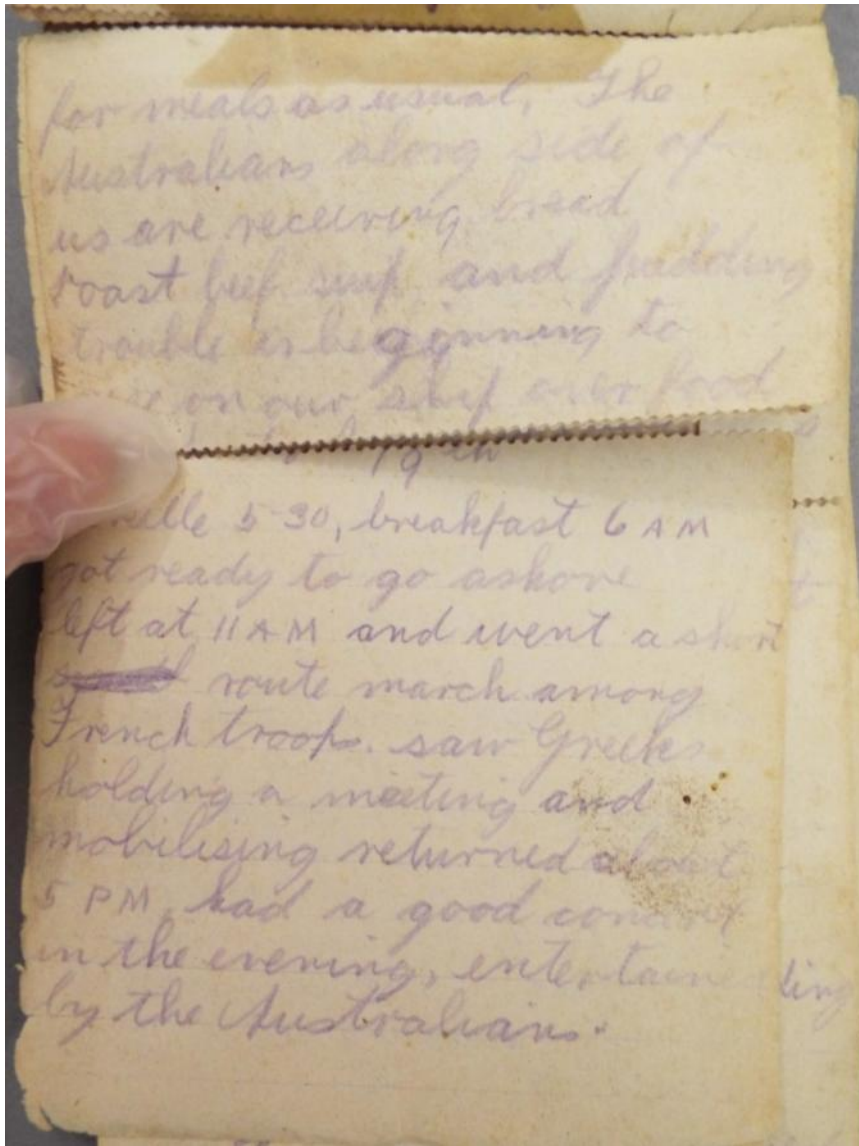 for meals as usual, The
Australians along side of
us are receiving bread
roast beef soup and pudding
trouble is beginning to
on our ship over food
19th
5-30, breakfast 6 AM
got ready to go ashore
left at 11 AM and went a short
route march among
French troops. saw Greeks
holding a meeting and
mobilising returned about
5 PM, had a good concert
in the evening, entertained
by the Australians.